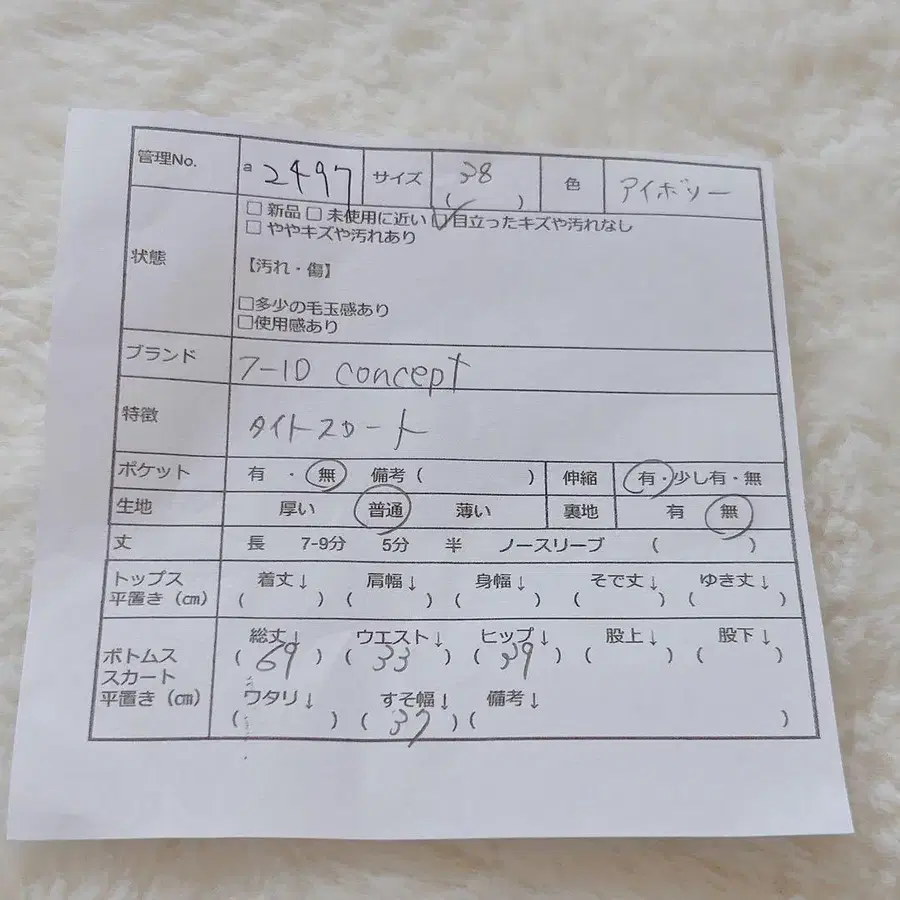 管理No. a 2497 サイズ 38 ( ) 色 アイボリー
状態 □ 新品 □ 未使用に近い ☑ 目立ったキズや汚れなし
□ ややキズや汚れあり
【汚れ・傷】
□多少の毛玉感あり
□使用感あり
ブランド 7-ID concept
特徴 タイトスカート
ポケット 有 ・ 無 備考 ( ) 伸縮 有・少し有・無
生地 厚い 普通 薄い 裏地 有 無
丈 長 7-9分 5分 半 ノースリーブ ( )
トップス 着丈↓ 肩幅↓ 身幅↓ そで丈↓ ゆき丈↓
平置き(㎝) ( ) ( ) ( ) ( ) ( )
ボトムス 総丈↓ ウエスト↓ ヒップ↓ 股上↓ 股下↓
スカート ( 69 ) ( 33 ) ( 39 ) ( ) ( )
平置き(㎝) ワタリ↓ すそ幅↓ 備考↓
( ) ( 37 ) ( )